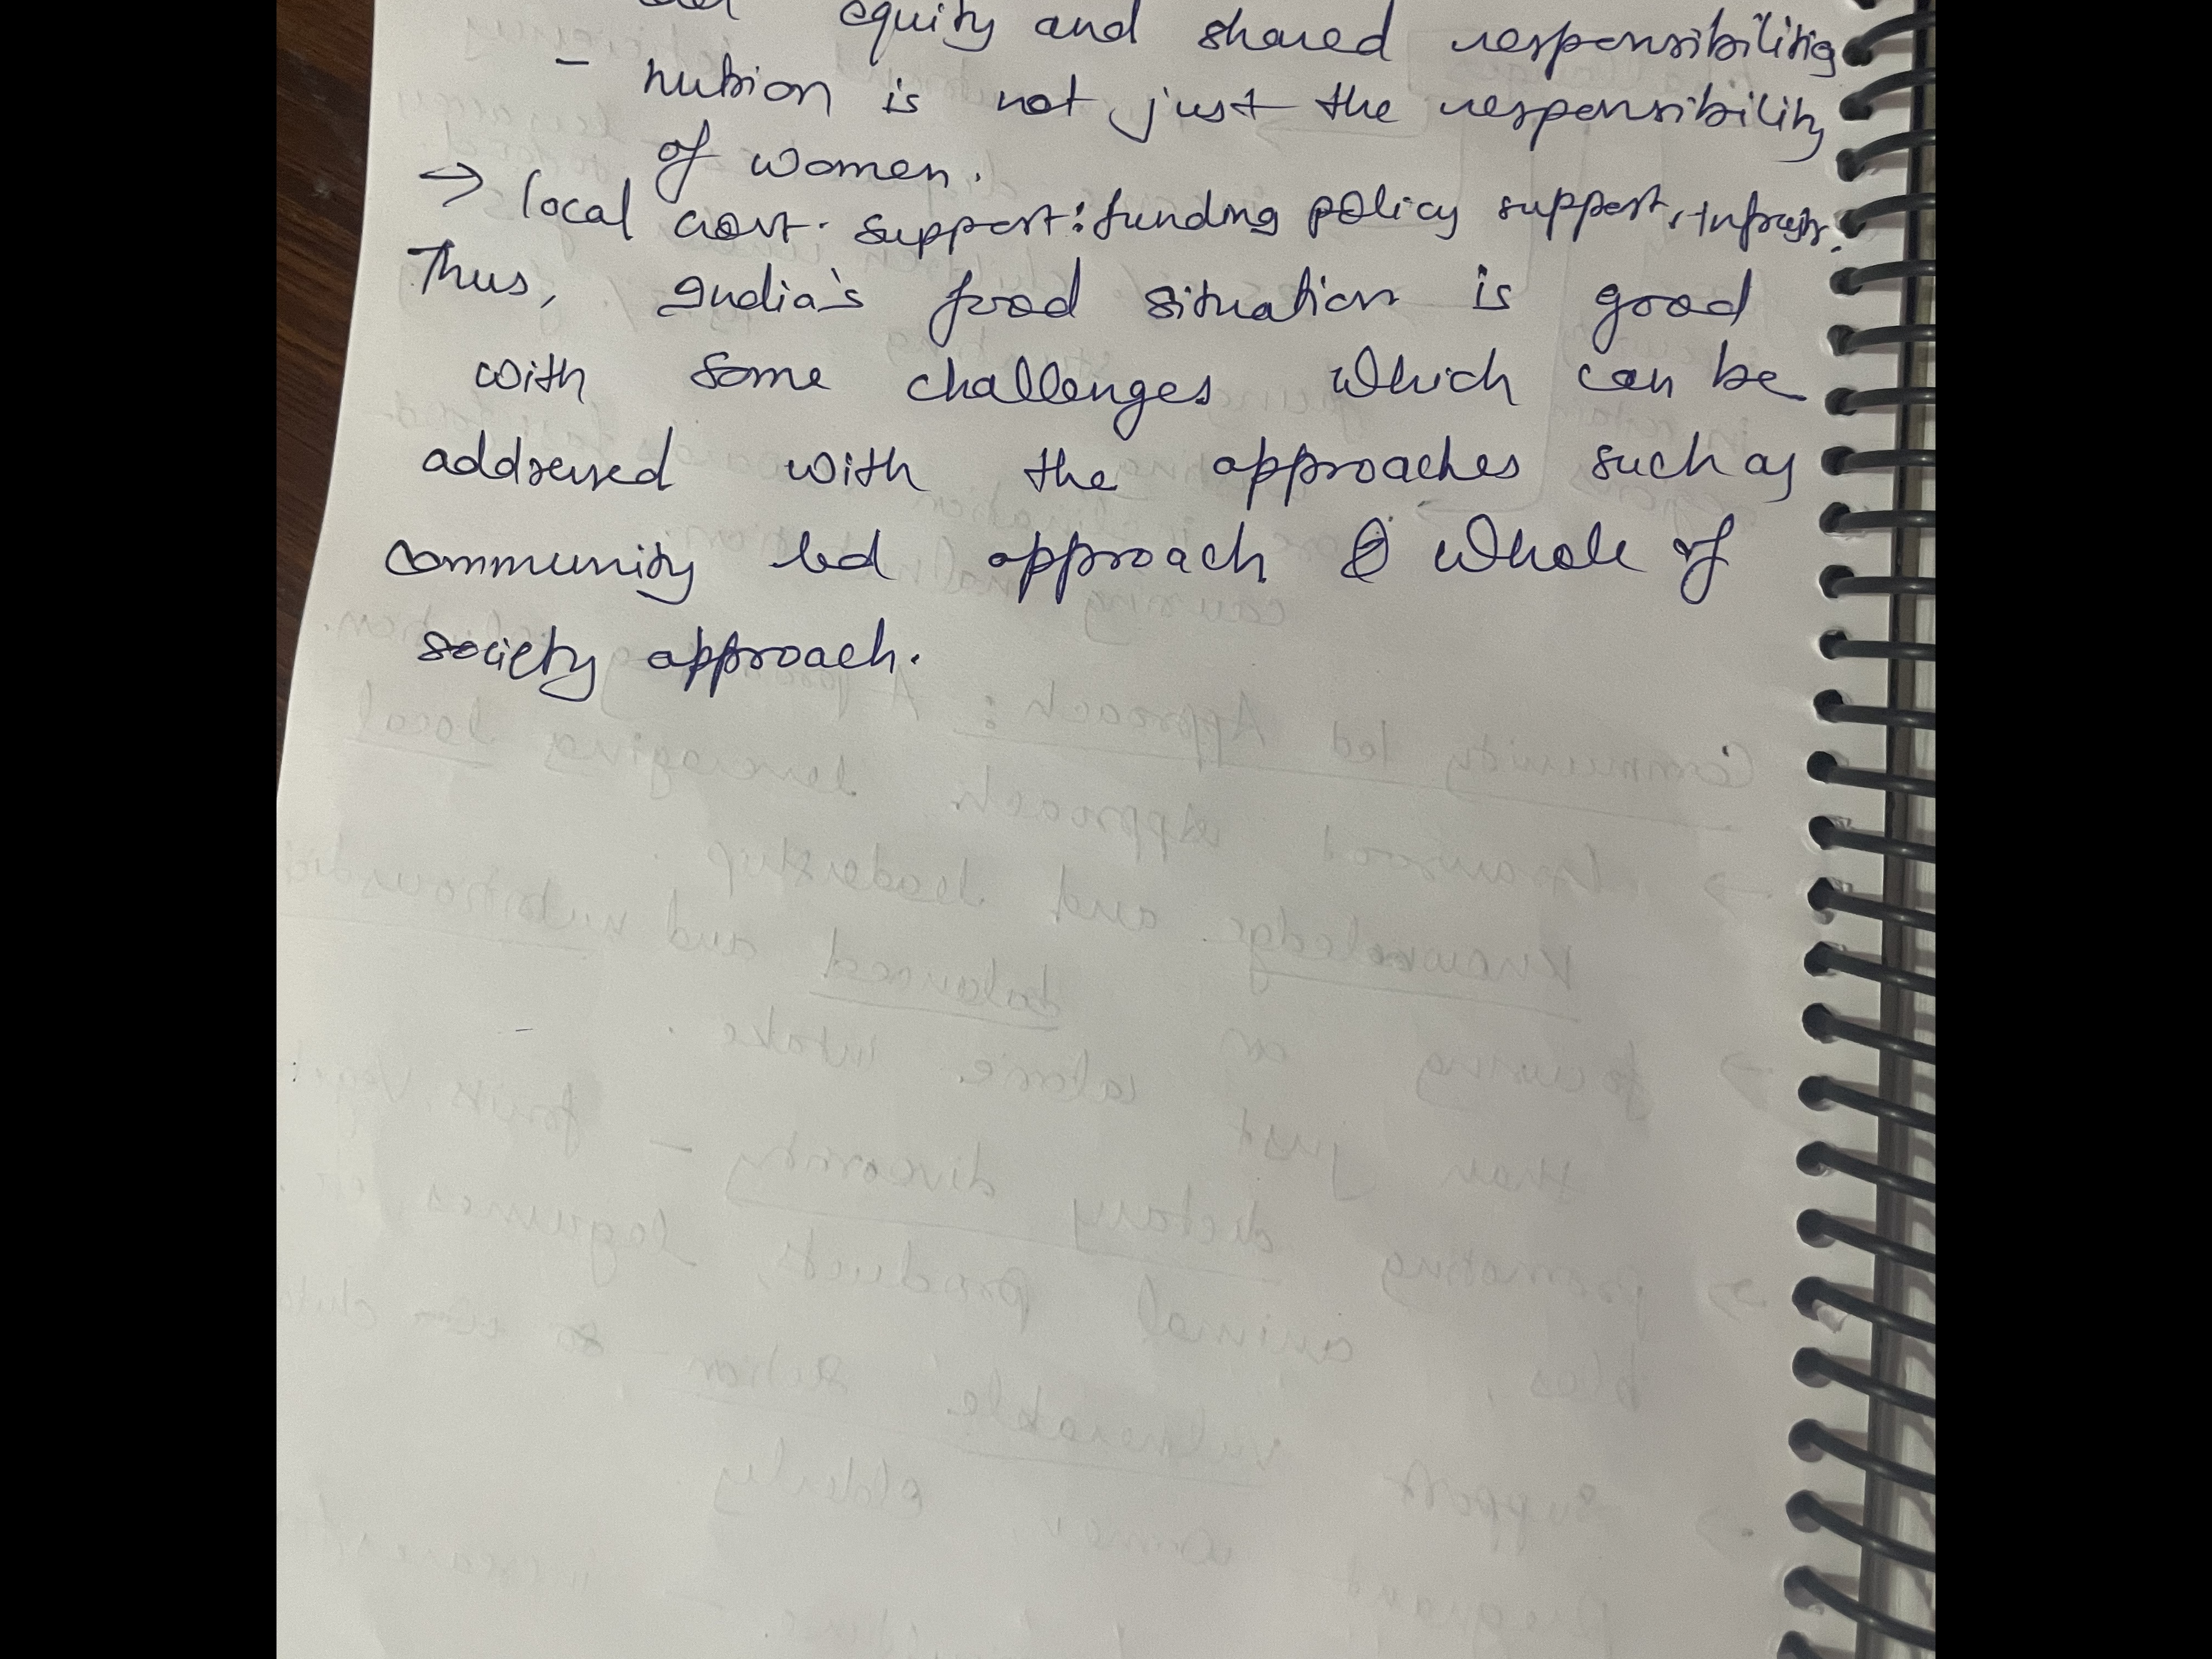 equity and shared responsibilitis
- nutrion is not just the responsibility
of women.
→ local Govt. support: funding policy support, Infrastr.
Thus, India's food situation is good
with some challenges which can be
addressed with the approaches such as
community led approach & whole of
society approach.